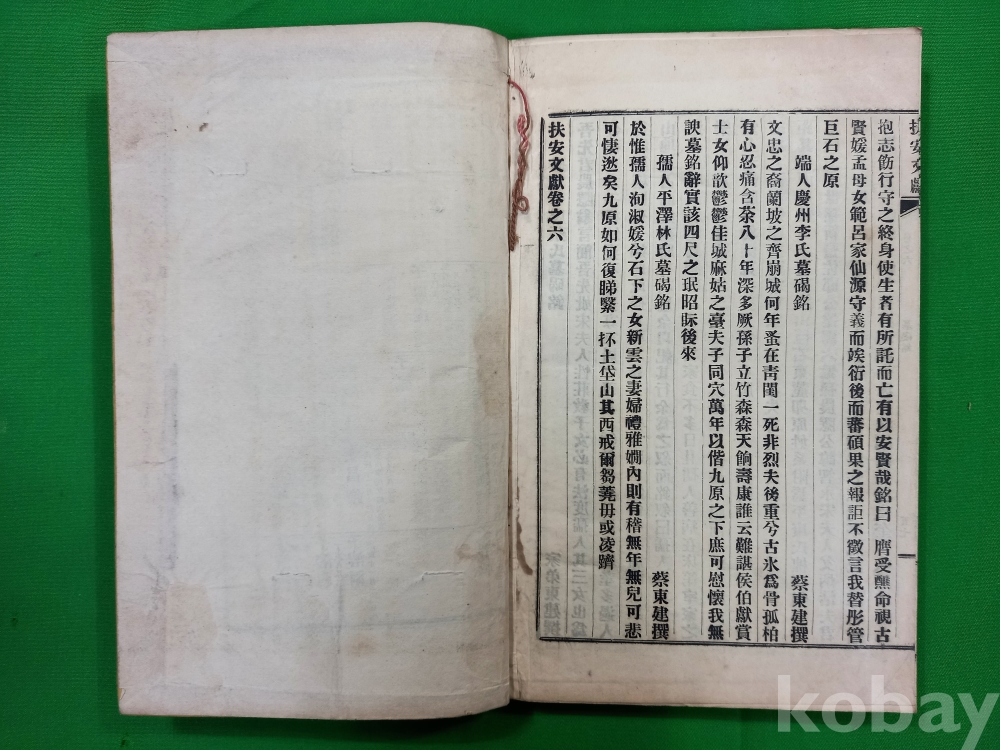 扶安文獻
抱志飭行守之終身使生者有所託而亡有以安賢哉銘曰 膺受醮命視古
賢媛孟母女範呂家仙源守義而竢衍後而蕃碩果之報詎不徵言我替彤管
巨石之原
端人慶州李氏墓碣銘 蔡東建撰
文忠之裔蘭坡之齊崩城何年蚤在靑閨一死非烈夫後重兮古氷爲骨孤柏
有心忍痛含荼八十年深多厥孫子立竹森森天餉壽康誰云難諶侯伯獻賞
士女仰欽鬱鬱佳城麻姑之臺夫子同穴萬年以偕九原之下庶可慰懷我無
諛墓銘辭實該四尺之珉昭眎後來
孺人平澤林氏墓碣銘 蔡東建撰
於惟孺人洵淑媛兮石下之女新雲之妻婦禮雅嫺內則有稽無年無兒可悲
可悽逖矣九原如何復睇緊一抔土垈山其西戒爾芻蕘毋或凌躋
扶安文獻卷之六
kobay